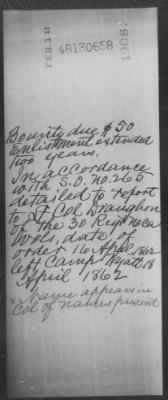 FEB. 1
48130658
1908.
Bounty due $50
enlistment extended
two years.
In accordance
with S.O. No. 265
detailed to report
to Lt Col Draughon
of the 30 Regt No Ca
Vols, date of
order 16 April 1862
left Camp Wyatt 18
April 1862
x name appears in
Col of names present